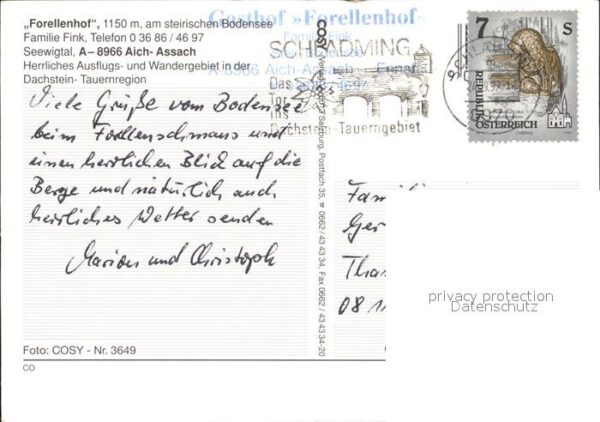 „Forellenhof", 1150 m, am steirischen Bodensee
Familie Fink, Telefon 0 36 86 / 46 97
Seewigtal, A– 8966 Aich- Assach
Herrliches Ausflugs- und Wandergebiet in der
Dachstein- Tauernregion
Gasthof »Forellenhof«
A-8966 Aich-Assach - Ennstal
SCHLADMING
Das
Tor
ins
Dachstein-Tauerngebiet
7 S
REPUBLIK
ÖSTERREICH
8970
Viele Grüße vom Bodensee
beim Forellenschmaus und
einen herrlichen Blick auf die
Berge und natürlich auch
herrliches Wetter senden
Marion und Christoph
COSY
Salzburg, Postfach 35, 0662/43 43 34, Fax 0662/43 43 34-20
Famili
Ger
Thar
08 1
privacy protection
Datenschutz
Foto: COSY - Nr. 3649
CO